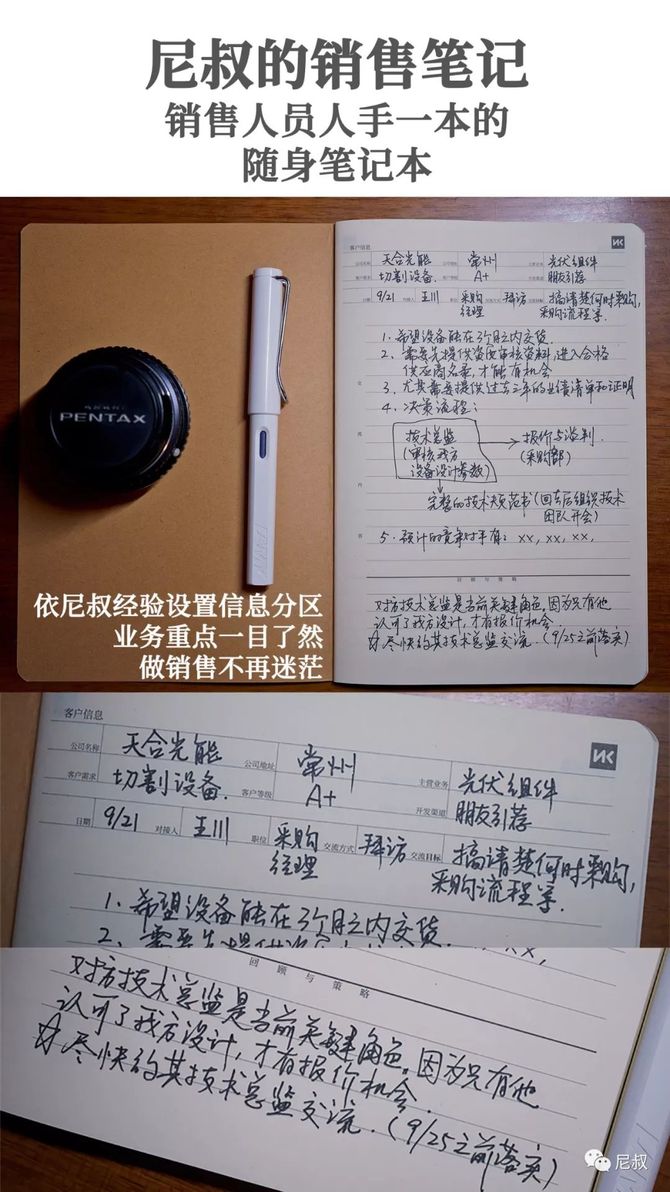 尼叔的销售笔记
销售人员人手一本的
随身笔记本
PENTAX
客户信息
公司名称 天合光能 公司地址 常州 主营业务 光伏组件
客户需求 切割设备. 客户等级 A+ 开发渠道 朋友引荐
日期 9/21 对接人 王川 职位 采购经理 交流方式 拜访 交流目标 搞清楚何时采购,
采购流程等.
1、希望设备能在3个月之内交货.
2、需要先提供资质审核资料,进入合格
供应商名录,才能有机会
3、尤其需要提供过去三年的业绩清单和证明
4、决策流程:
技术总监
(审核我方
设备设计参数)
报价与谈判.
(采购部)
完整的技术规范书(回去后组织技术
团队开会)
5、预计的竞争对手有: xx, xx, xx,
回顾与策略
对方技术总监是当前关键角色,因为只有他
认可了我方设计,才有报价机会.
☆尽快约其技术总监交流.(9/25之前落实)
依尼叔经验设置信息分区
业务重点一目了然
做销售不再迷茫
客户信息
公司名称 天合光能 公司地址 常州 主营业务 光伏组件
客户需求 切割设备. 客户等级 A+ 开发渠道 朋友引荐
日期 9/21 对接人 王川 职位 采购经理 交流方式 拜访 交流目标 搞清楚何时采购,
采购流程等.
1、希望设备能在3个月之内交货.
回顾与策略
对方技术总监是当前关键角色,因为只有他
认可了我方设计,才有报价机会.
☆尽快约其技术总监交流.(9/25之前落实)
尼叔